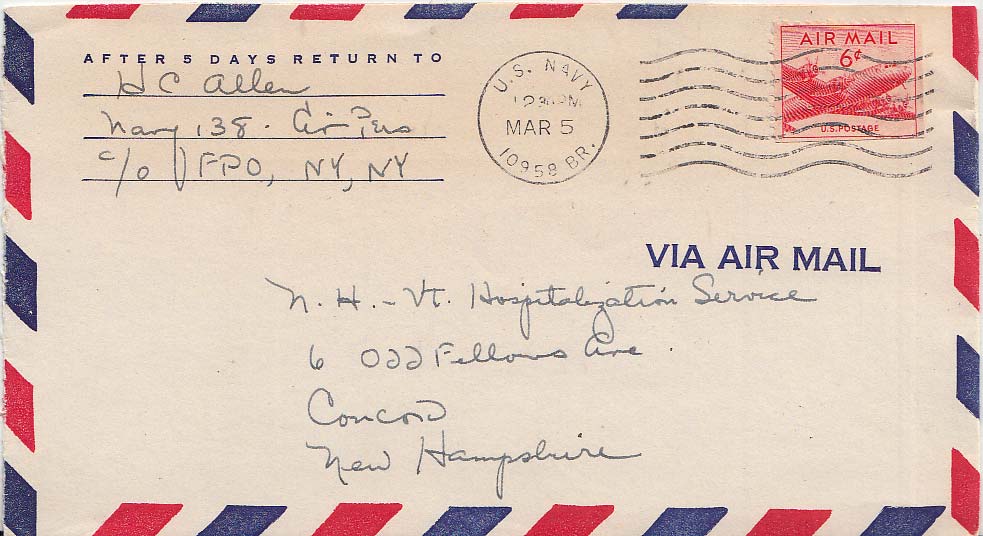 AFTER 5 DAYS RETURN TO
H C Allen
Navy 138 -
c/o FPO, NY, NY
U.S. NAVY
MAR 5
10958 BR.
AIR MAIL
6¢
U.S. POSTAGE
VIA AIR MAIL
N. H. - Vt. Hospitalization Service
6 Odd Fellows Ave
Concord
New Hampshire